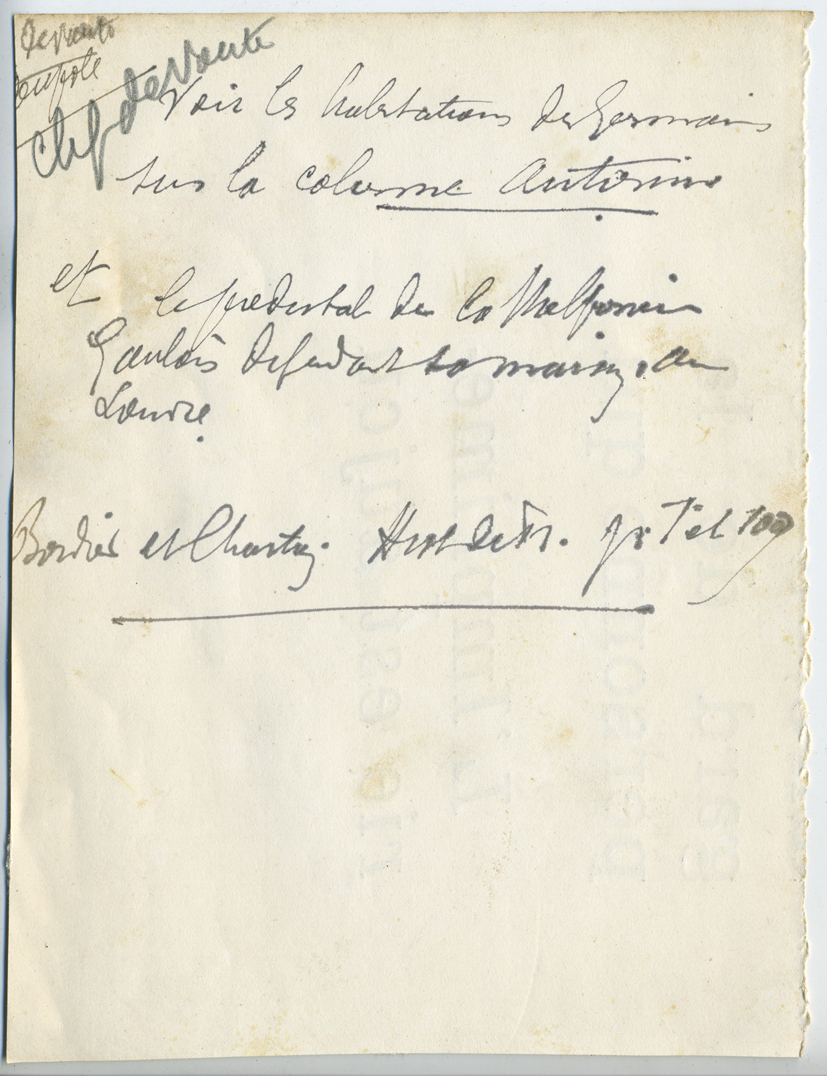 coupole
clef de voute
Voir les habitations des Germains
sur la colonne Antonine
et le piedestal de la Melpomène
Gaulois defendant sa maison au
Louvre.
Bordier et Charton. Hist de Fr. p. 1 et 100